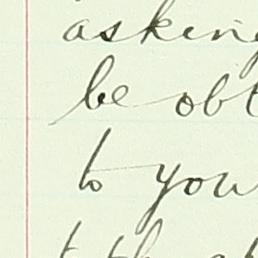 asking
be obt
to you